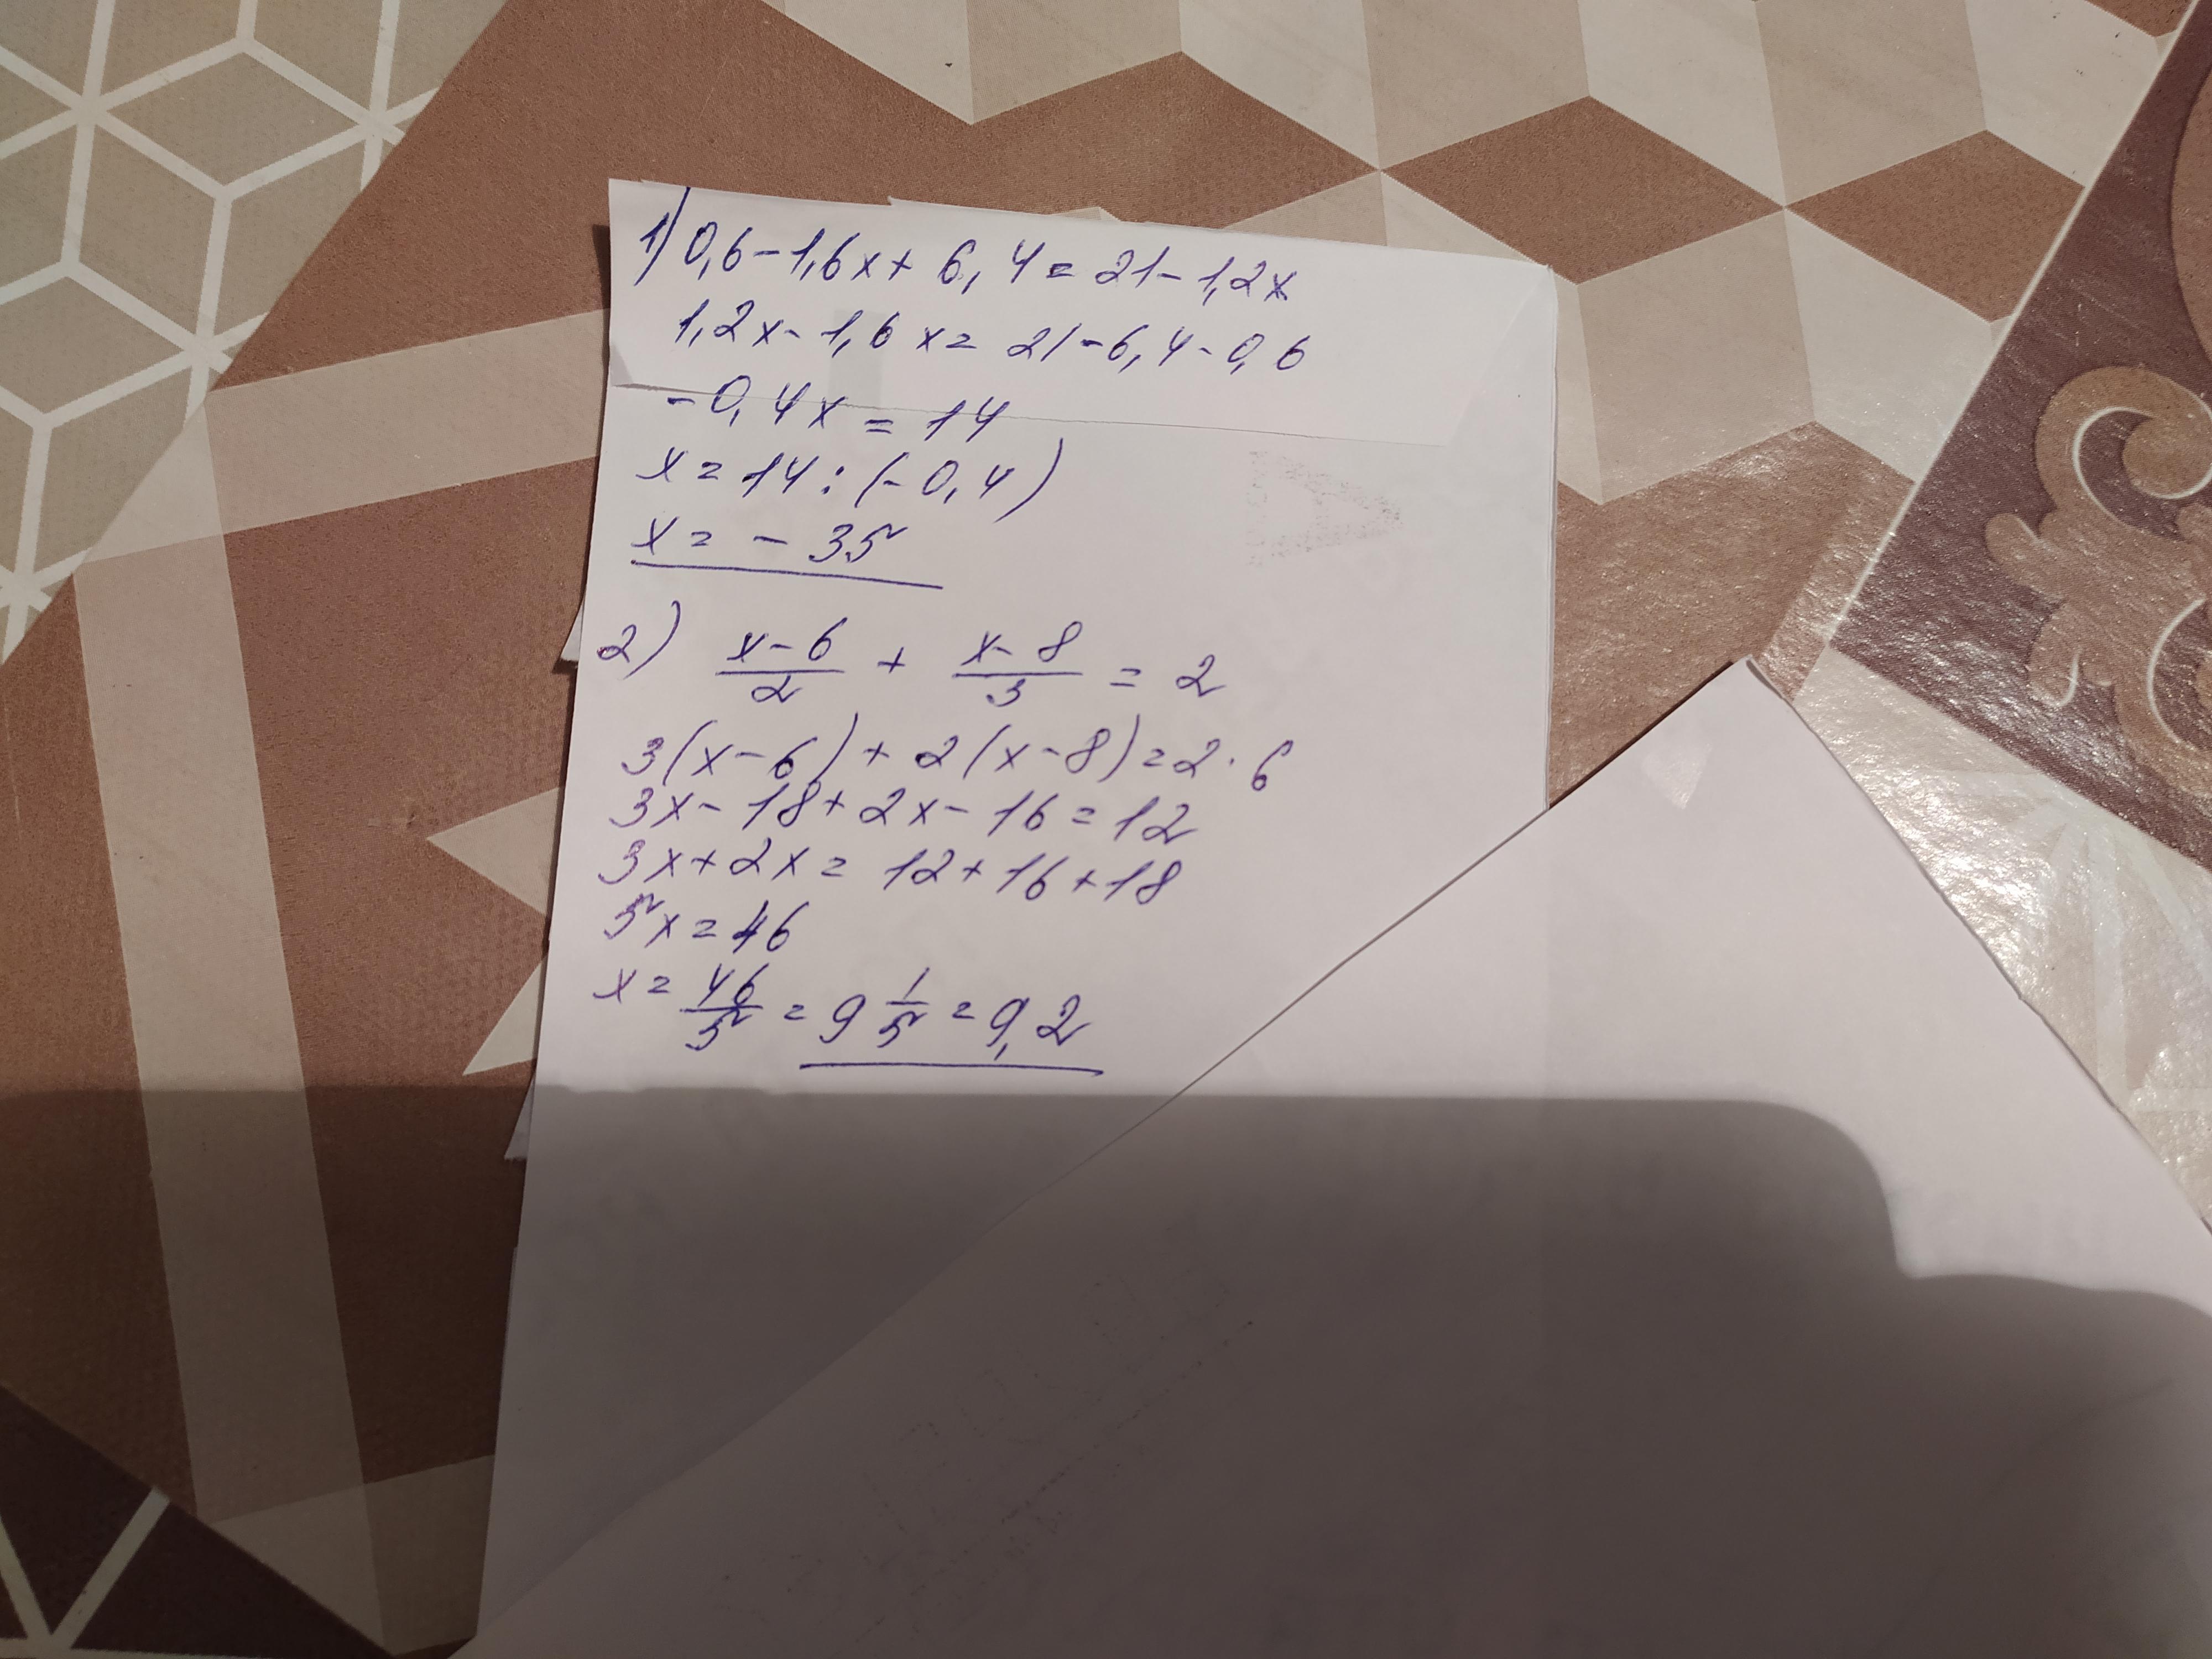 1) 0,6-1,6x+6,4=21-1,2x
1,2x-1,6x=21-6,4-0,6
-0,4x=14
x=14:(-0,4)
x=-35
2) (x-6)/2 + (x-8)/3 = 2
3(x-6)+2(x-8)=2·6
3x-18+2x-16=12
3x+2x=12+16+18
5x=46
x=46/5=9 1/5=9,2